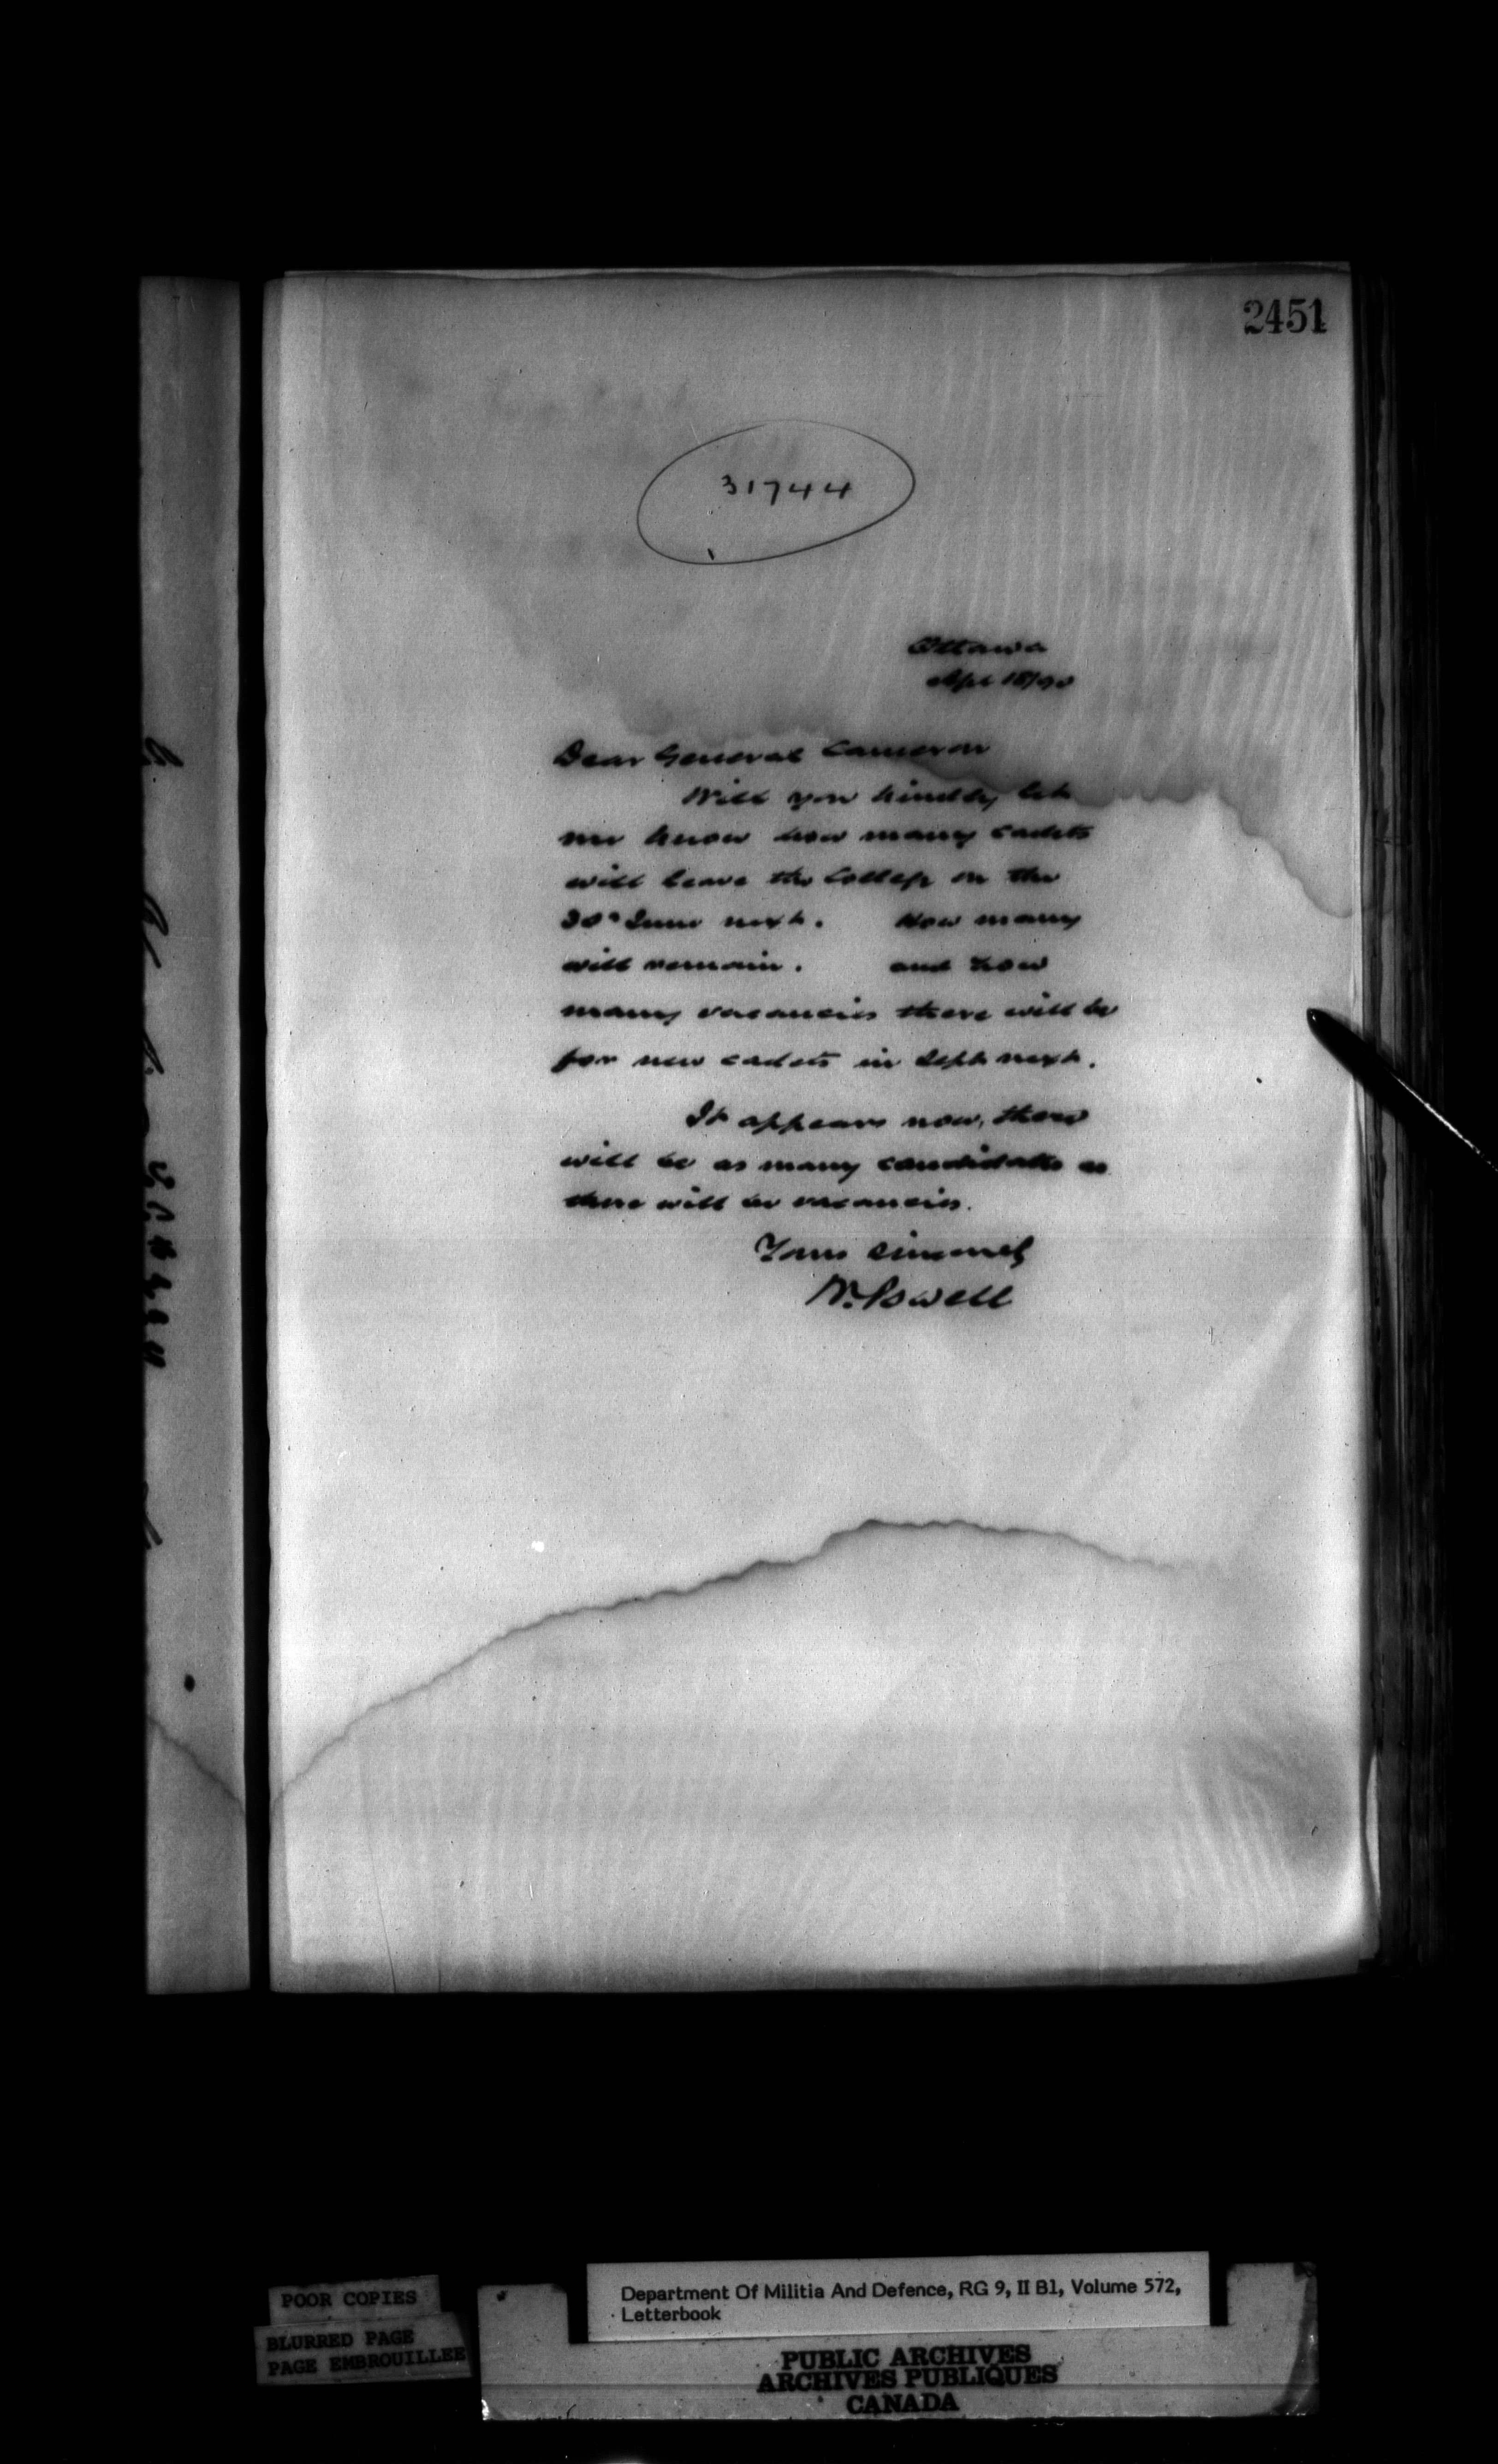 2451
31744
Ottawa
Apl 18/90
Dear General Cameron
Will you kindly let
me know how many cadets
will leave the College on the
30th June next. How many
will remain. and how
many vacancies there will be
for new cadets in Sept next.
It appears now, there
will be as many candidates as
there will be vacancies.
Yours sincerely
W. Powell
POOR COPIES
BLURRED PAGE
PAGE EMBROUILLEE
Department Of Militia And Defence, RG 9, II B1, Volume 572,
Letterbook
PUBLIC ARCHIVES
ARCHIVES PUBLIQUES
CANADA